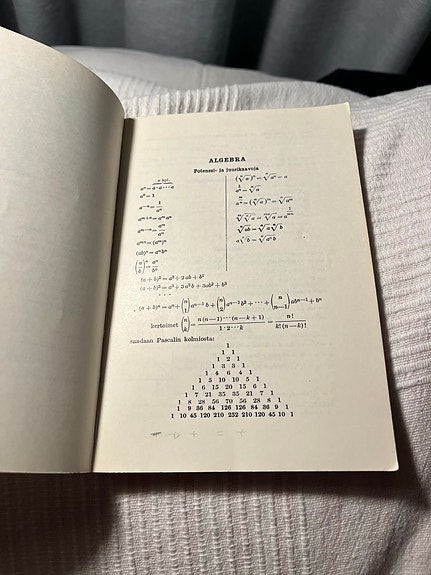 ALGEBRA
Potenssi- ja juurikaavoja
n kpl.
aⁿ = a · a · · · a
a⁰ = 1
a⁻ⁿ = 1/aⁿ
aᵐ⁺ⁿ = aᵐ aⁿ
aᵐ⁻ⁿ = aᵐ/aⁿ
aᵐⁿ = (aᵐ)ⁿ
(ab)ⁿ = aⁿ bⁿ
(a/b)ⁿ = aⁿ/bⁿ
(ⁿ√a)ⁿ = ⁿ√aⁿ = a
a^(1/n) = ⁿ√a
ⁿ√a ⁿ√b
a ⁿ√b = ⁿ√aⁿ b
(a + b)² = a² + 2 ab + b²
(a + b)³ = a³ + 3 a² b + 3 ab² + b³
. . .
(a + b)ⁿ = aⁿ + (n 1) aⁿ⁻¹ b + (n 2) aⁿ⁻² b² + · · · + (n n—1) abⁿ⁻¹ + bⁿ
kertoimet (n k) = n (n — 1) · · · (n — k + 1) / 1 · 2 · · · k = n! / k! (n — k)!
saadaan Pascalin kolmiosta:
1
1 1
1 2 1
1 3 3 1
1 4 6 4 1
1 5 10 10 5 1
1 6 15 20 15 6 1
1 7 21 35 35 21 7 1
1 8 28 56 70 56 28 8 1
1 9 36 84 126 126 84 36 9 1
1 10 45 120 210 252 210 120 45 10 1